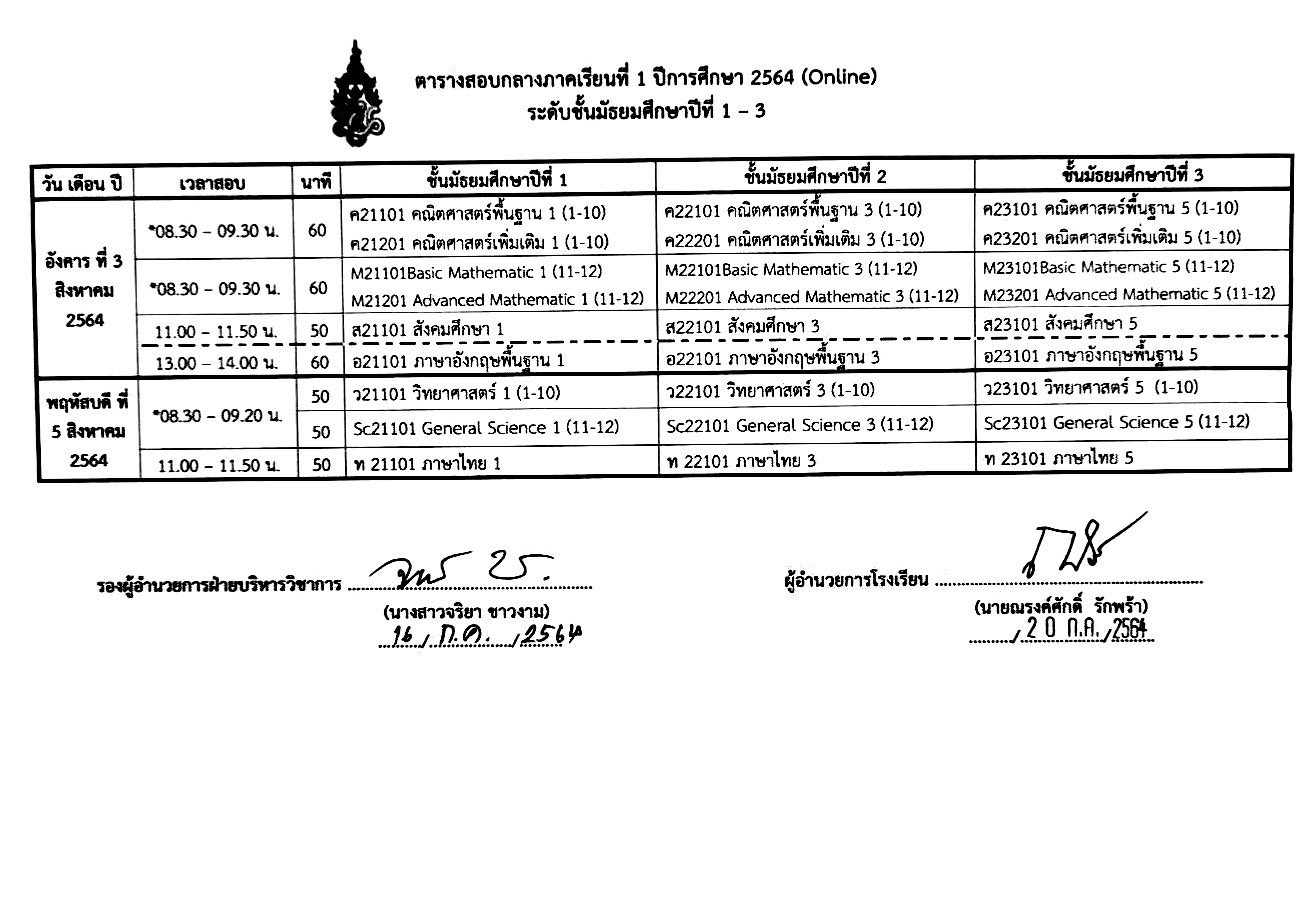 ตารางสอบกลางภาคเรียนที่ 1 ปีการศึกษา 2564 (Online)
ระดับชั้นมัธยมศึกษาปีที่ 1 – 3
วัน เดือน ปี เวลาสอบ นาที ชั้นมัธยมศึกษาปีที่ 1 ชั้นมัธยมศึกษาปีที่ 2 ชั้นมัธยมศึกษาปีที่ 3
อังคาร ที่ 3
สิงหาคม
2564
*08.30 – 09.30 น. 60
ค21101 คณิตศาสตร์พื้นฐาน 1 (1-10) ค22101 คณิตศาสตร์พื้นฐาน 3 (1-10) ค23101 คณิตศาสตร์พื้นฐาน 5 (1-10)
ค21201 คณิตศาสตร์เพิ่มเติม 1 (1-10) ค22201 คณิตศาสตร์เพิ่มเติม 3 (1-10) ค23201 คณิตศาสตร์เพิ่มเติม 5 (1-10)
*08.30 – 09.30 น. 60
M21101Basic Mathematic 1 (11-12) M22101Basic Mathematic 3 (11-12) M23101Basic Mathematic 5 (11-12)
M21201 Advanced Mathematic 1 (11-12) M22201 Advanced Mathematic 3 (11-12) M23201 Advanced Mathematic 5 (11-12)
11.00 – 11.50 น. 50 ส21101 สังคมศึกษา 1 ส22101 สังคมศึกษา 3 ส23101 สังคมศึกษา 5
13.00 – 14.00 น. 60 อ21101 ภาษาอังกฤษพื้นฐาน 1 อ22101 ภาษาอังกฤษพื้นฐาน 3 อ23101 ภาษาอังกฤษพื้นฐาน 5
พฤหัสบดี ที่
5 สิงหาคม
2564
*08.30 – 09.20 น.
50 ว21101 วิทยาศาสตร์ 1 (1-10) ว22101 วิทยาศาสตร์ 3 (1-10) ว23101 วิทยาศาสตร์ 5 (1-10)
50 Sc21101 General Science 1 (11-12) Sc22101 General Science 3 (11-12) Sc23101 General Science 5 (11-12)
11.00 – 11.50 น. 50 ท 21101 ภาษาไทย 1 ท 22101 ภาษาไทย 3 ท 23101 ภาษาไทย 5
รองผู้อำนวยการฝ่ายบริหารวิชาการ
(นางสาวจริยา ขาวงาม)
16 / ก.ค. / 2564
ผู้อำนวยการโรงเรียน
(นายณรงค์ศักดิ์ รักพร้า)
/ 20 ก.ค. / 2564